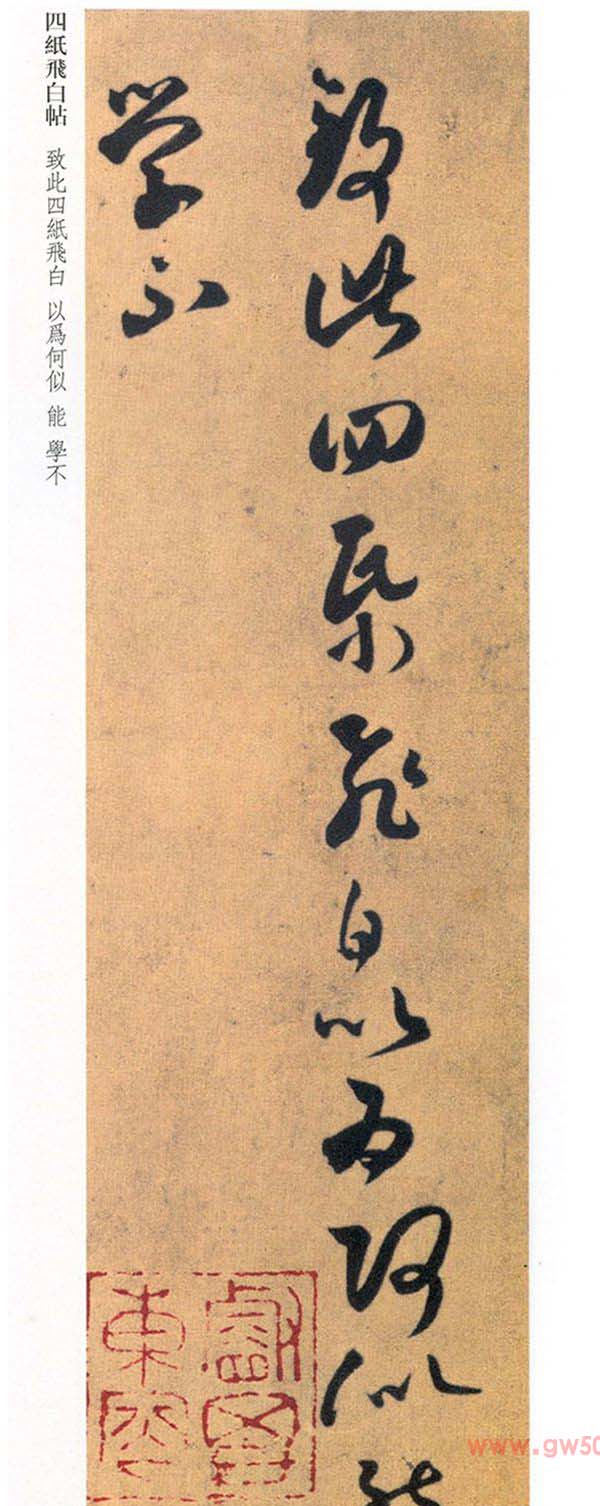 致此四紙飛白以爲何似能
学不
四紙飛白帖 致此四紙飛白 以爲何似 能 學不
www.gw50